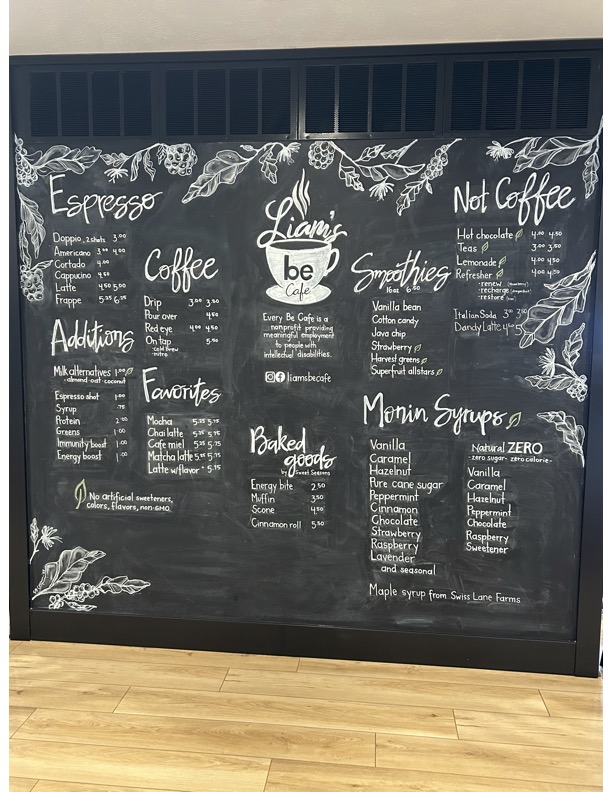 Espresso
Doppio, 2 shots 3.00
Americano 3.00 4.00
Cortado 4.00
Cappucino 4.50
Latte 4.50 5.00
Frappe 5.25 6.25
Additions
Milk alternatives 1.00
-almond-oat-coconut
Espresso shot 1.00
Syrup .75
Protein 2.00
Greens 1.00
Immunity boost 1.00
Energy boost 1.00
No artificial sweeteners,
colors, flavors, non-GMO
Coffee
Drip 3.00 3.50
Pour over 4.50
Red eye 4.00 4.50
On tap 5.50
-cold brew
-nitro
Favorites
Mocha 5.25 5.75
Chai latte 5.25 5.75
Cafe miel 5.25 5.75
Matcha latte 5.25 5.75
Latte w/flavor 5.15
Liam's
be
Cafe
Every Be Cafe is a
nonprofit providing
meaningful employment
to people with
intellectual disabilities.
liamsbecafe
Baked
goods
by Sweet Seasons
Energy bite 2.50
Muffin 3.50
Scone 4.50
Cinnamon roll 5.50
Smoothies
16oz 6.50
Vanilla bean
Cotton candy
Java chip
Strawberry
Harvest greens
Superfruit allstars
Not Coffee
Hot chocolate 4.00 4.50
Teas 3.00 3.50
Lemonade 4.00 4.50
Refresher 4.00 4.50
-renew
-recharge
-restore
Italian Soda 3.00
Dandy Latte
Monin Syrups
Vanilla
Caramel
Hazelnut
Pure cane sugar
Peppermint
Cinnamon
Chocolate
Strawberry
Raspberry
Lavender
and seasonal
Natural ZERO
-zero sugar- zero calorie-
Vanilla
Caramel
Hazelnut
Peppermint
Chocolate
Raspberry
Sweetener
Maple syrup from Swiss Lane Farms